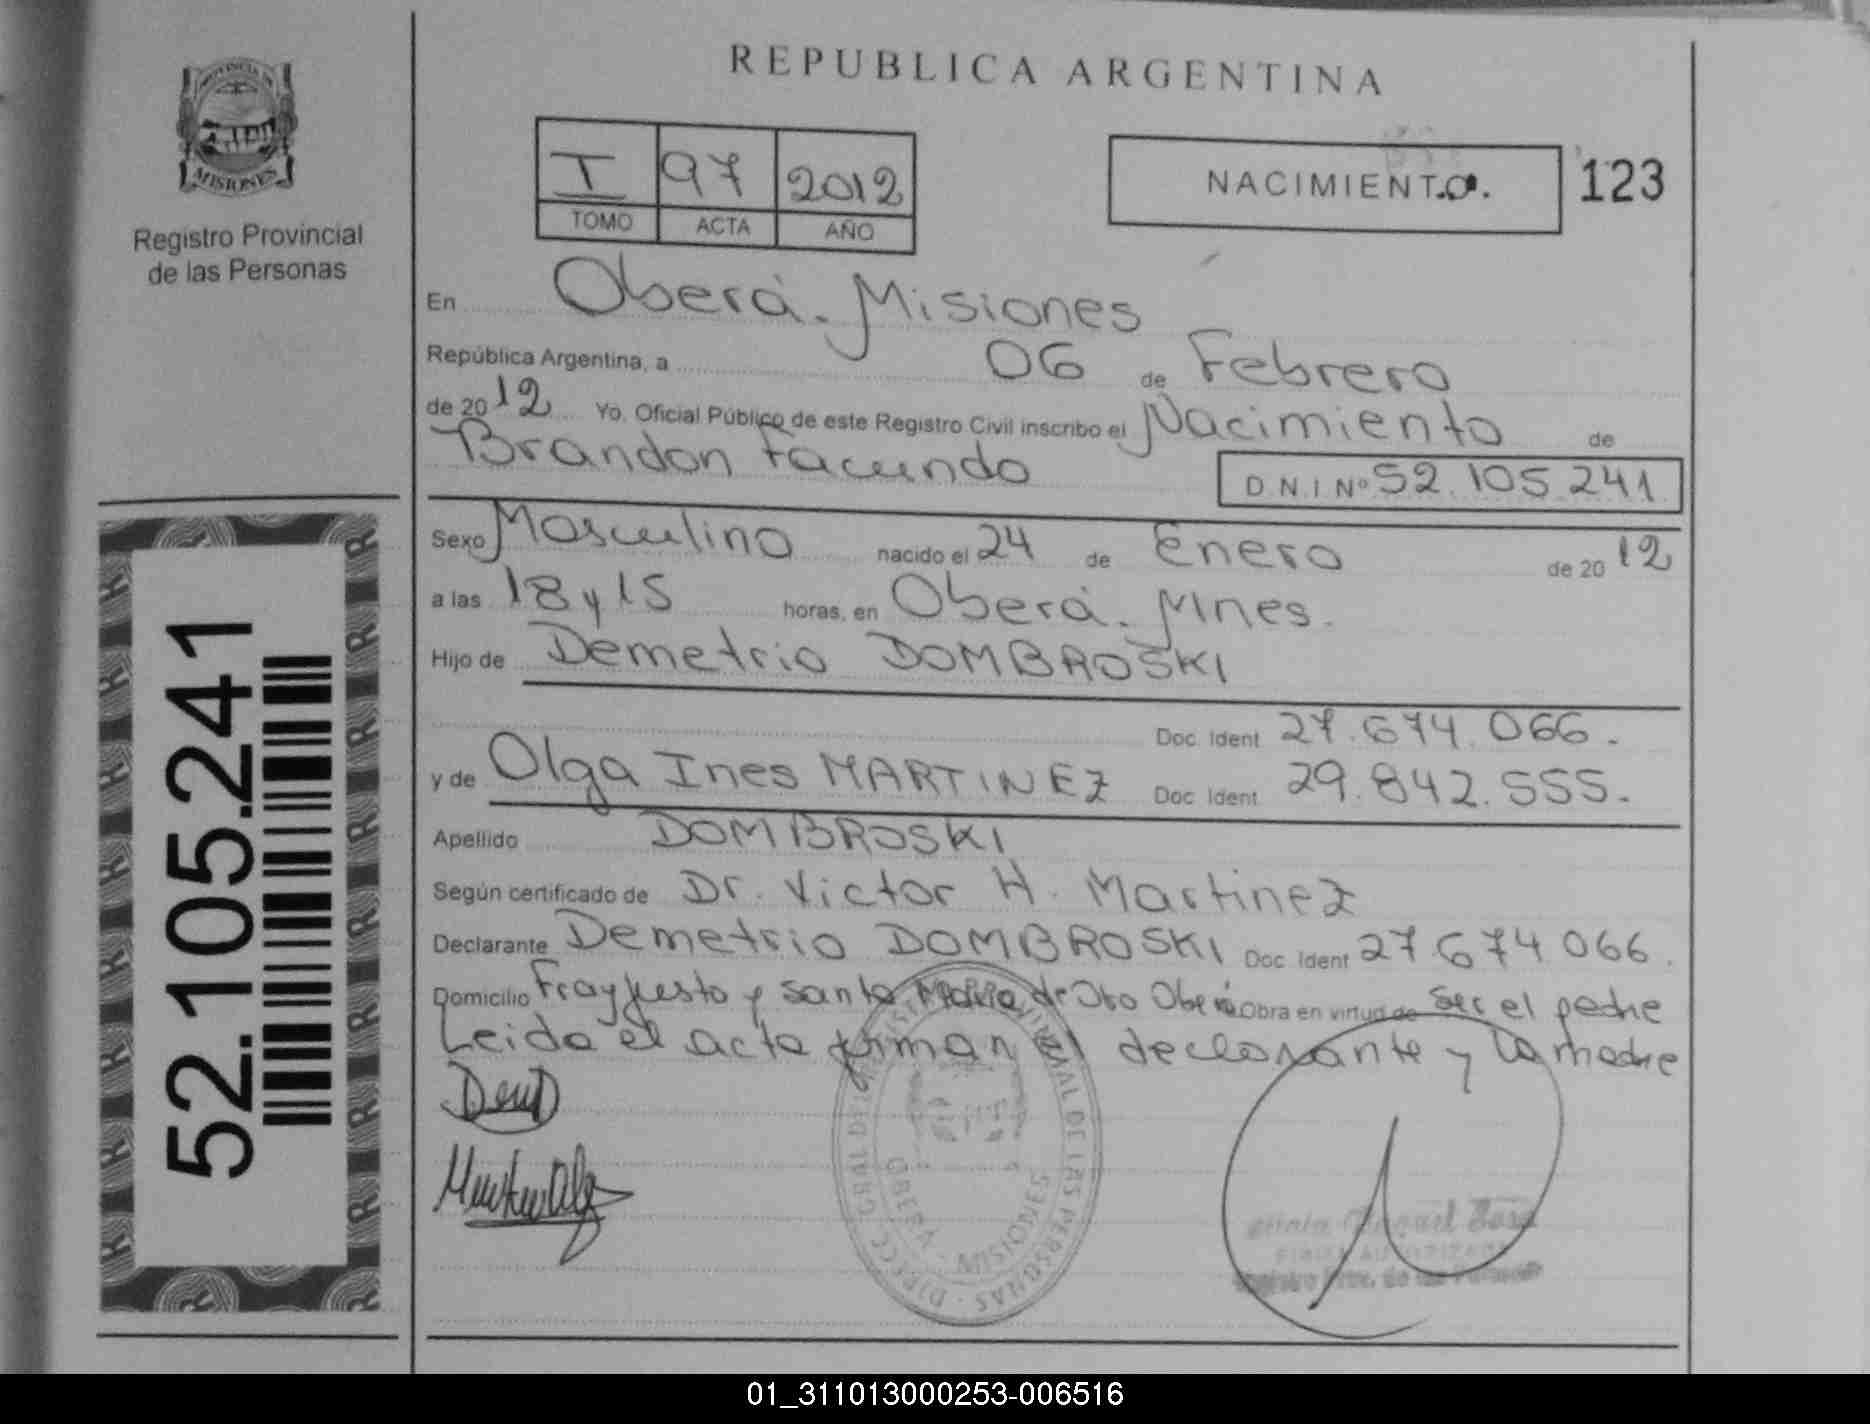 REPUBLICA ARGENTINA
PROVINCIA DE
MISIONES
Registro Provincial
de las Personas
I 97 2012
TOMO ACTA AÑO
NACIMIENTO. 123
En Oberá. Misiones
República Argentina, a 06 de Febrero
de 2012 Yo, Oficial Público de este Registro Civil inscribo el Nacimiento de
Brandon Facundo D.N.I Nº 52.105.241
Sexo Masculino nacido el 24 de Enero de 2012
a las 18 y 15 horas, en Oberá. Mnes.
Hijo de Demetrio DOMBROSKI
Doc. Ident 27.674.066.
y de Olga Ines MARTINEZ Doc. Ident 29.842.555.
Apellido DOMBROSKI
Según certificado de Dr. Victor H. Martinez
Declarante Demetrio DOMBROSKI Doc. Ident 27 674 066.
Domicilio Fray Justo y Santa Maria de Oro Oberá Obra en virtud de ser el padre
Leida el acta firman el declarante y la madre
52.105.241
OBERÁ - MISIONES
Raquel
FIRMA AUTORIZADA
01_311013000253-006516